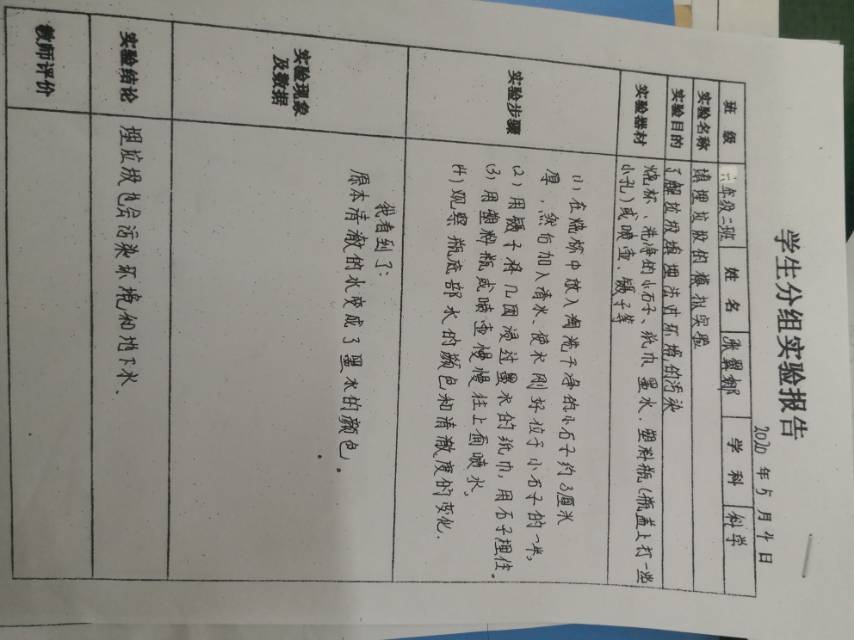 学生分组实验报告
2020年5月4日
班 级 六年级二班 姓 名 学 科 科学
实验名称 填埋垃圾的模拟实验
实验目的 了解垃圾填埋法对环境的污染
实验器材 烧杯、洗净的小石子、纸巾 墨水、塑料瓶(瓶盖上打一些
小孔)或喷壶、镊子等
实验步骤
(1) 在烧杯中放入淘洗干净的小石子约3厘米
厚，然后加入清水、使水刚好位于小石子的一半，
(2) 用镊子将几团浸过墨水的纸巾，用石子埋住。
(3) 用塑料瓶或喷壶慢慢往上面喷水，
(4) 观察瓶底部水的颜色和清澈度的变化.
实验现象
及数据
我看到了：
原本清澈的水变成了墨水的颜色。
实验结论 埋垃圾也会污染环境和地下水.
教师评价